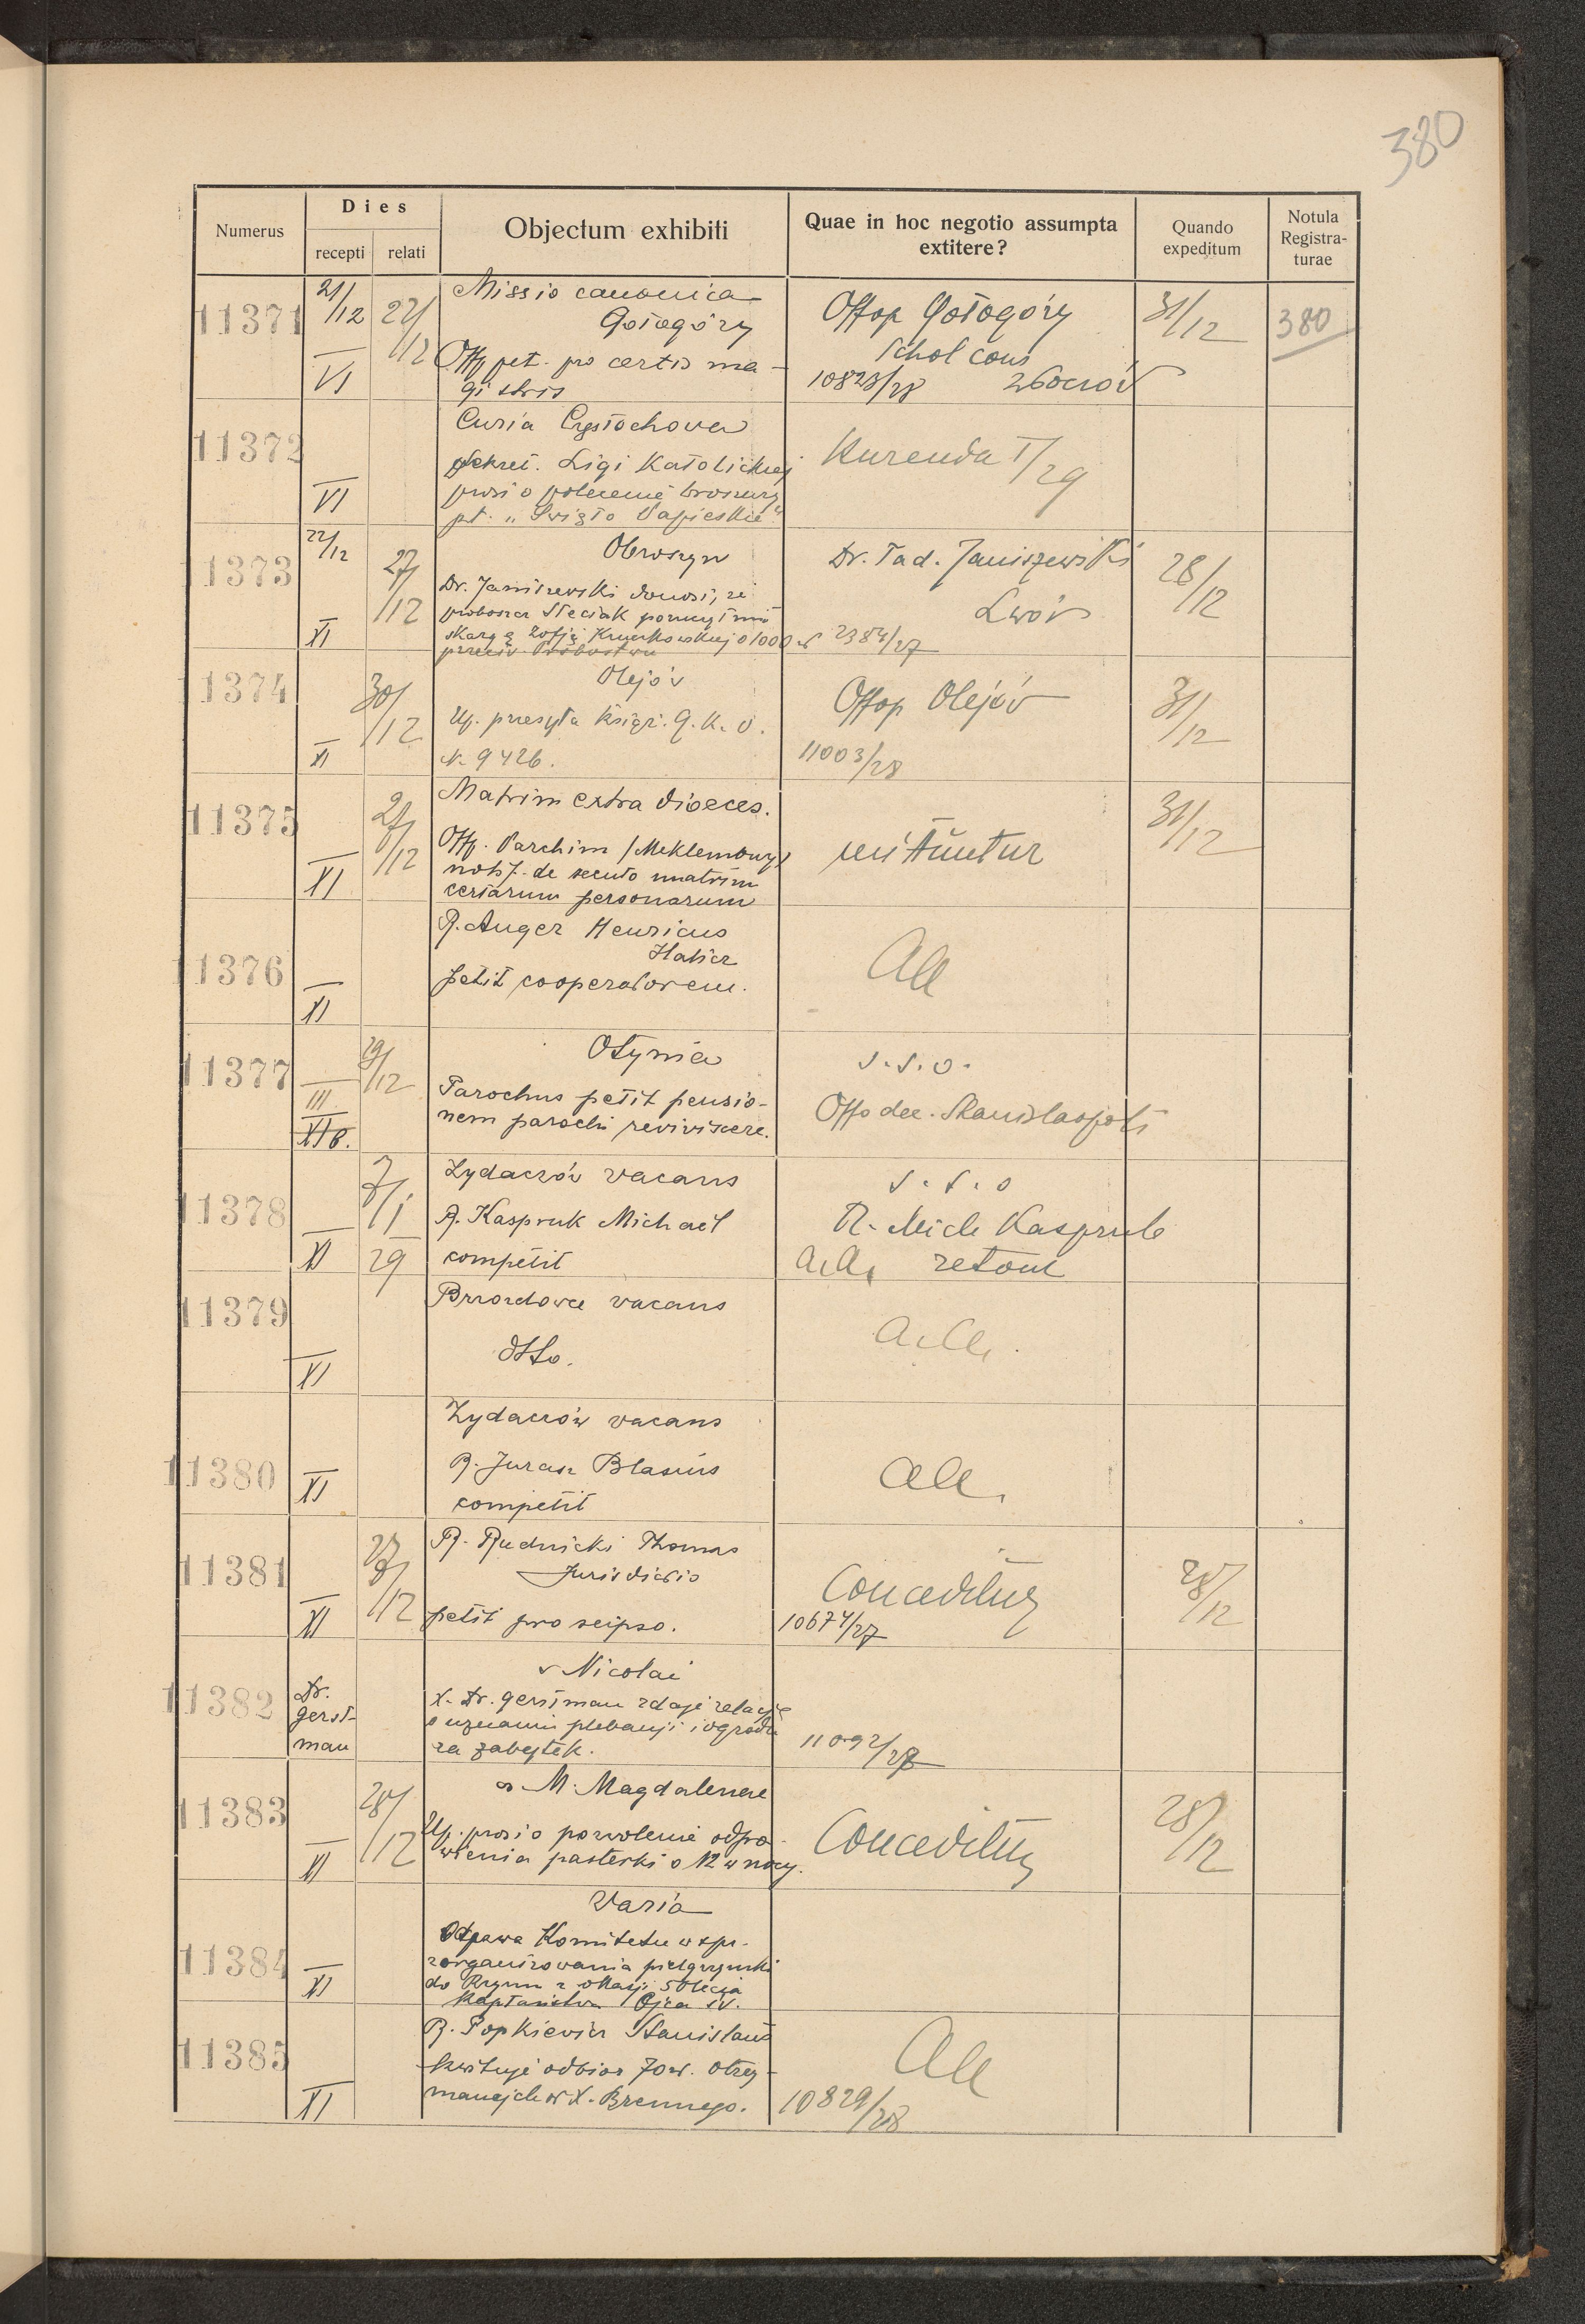 380
Numerus
Dies
recepti
relati
Objectum exhibiti
Quae in hoc negotio assumpta extitere?
Quando expeditum
Notula Registra-turae
11371
21/12
VI
22/12
Missio canonica
Gołogóry
Offp pet. pro certis ma-
gistris
Offop Gołogóry
Schol cons
10823/28
31/12
380
11372
VI
Curia Częstochowa
Sekret. Ligi Katolickiej
prosi o polecenie broszury
pt. „Święto Papieskie"
Kurenda I/29
11373
22/12
XI
27/12
Obroszyn
Dr. Janiszewski donosi, że
proboszcz Steciak
skargą Zofję Kruczkowskiej o 1000 zł
przeciw Probostwu
Dr. Tad. Janiszewski
Lwów
2384/27
28/12
11374
XI
30/12
Olejów
Up. przesyła książ. G. K. O.
N. 9426.
Offop Olejów
11003/28
31/12
11375
XI
27/12
Matrim extra dioeces.
Offp. Parchim /Meklemburg/
notif. de secuto matrim
certarum personarum
mittuntur
31/12
11376
XI
R. Auger Henricus
Halicz
petit cooperatorem.
AA
11377
III
XI B.
29/12
Otynia
Parochus petit pensio-
nem parochi reviviscere.
s. s. o.
Offo dec. Stanislaopoli
11378
XI
7/1
29
Żydaczów vacans
R. Kaspruk Michael
competit
s. s. o
R. Mich Kaspruk
A.A. retour
11379
XI
Brzozdowce vacans
dtto.
a.a.
11380
XI
Żydaczów vacans
R. Jurasz Blasius
competit
aa.
11381
XI
27/12
R. Rudnicki Thomas
Jurisdictio
petit pro seipso.
Conceditur
10674/27
28/12
11382
Dr.
Gerst-
man
s Nicolai
X. Dr. Gerstman zdaje relację
o uznaniu plebanji i ogrodu
za zabytek.
11092/28
11383
XI
28/12
s. M. Magdalenae
Up. prosi o pozwolenie odpra-
wienia pasterki o 12 w nocy.
Conceditur
28/12
11384
XI
Varia
Odezwa Komitetu w spr.
zorganizowania pielgrzymki
do Rzymu z okazji 50lecia
Kapłaństwa Ojca św.
11385
XI
R. Popkiewicz Stanislaus
kwituje odbiór 70 zł. otrzy-
manych w X. Brennego.
AA
10829/28